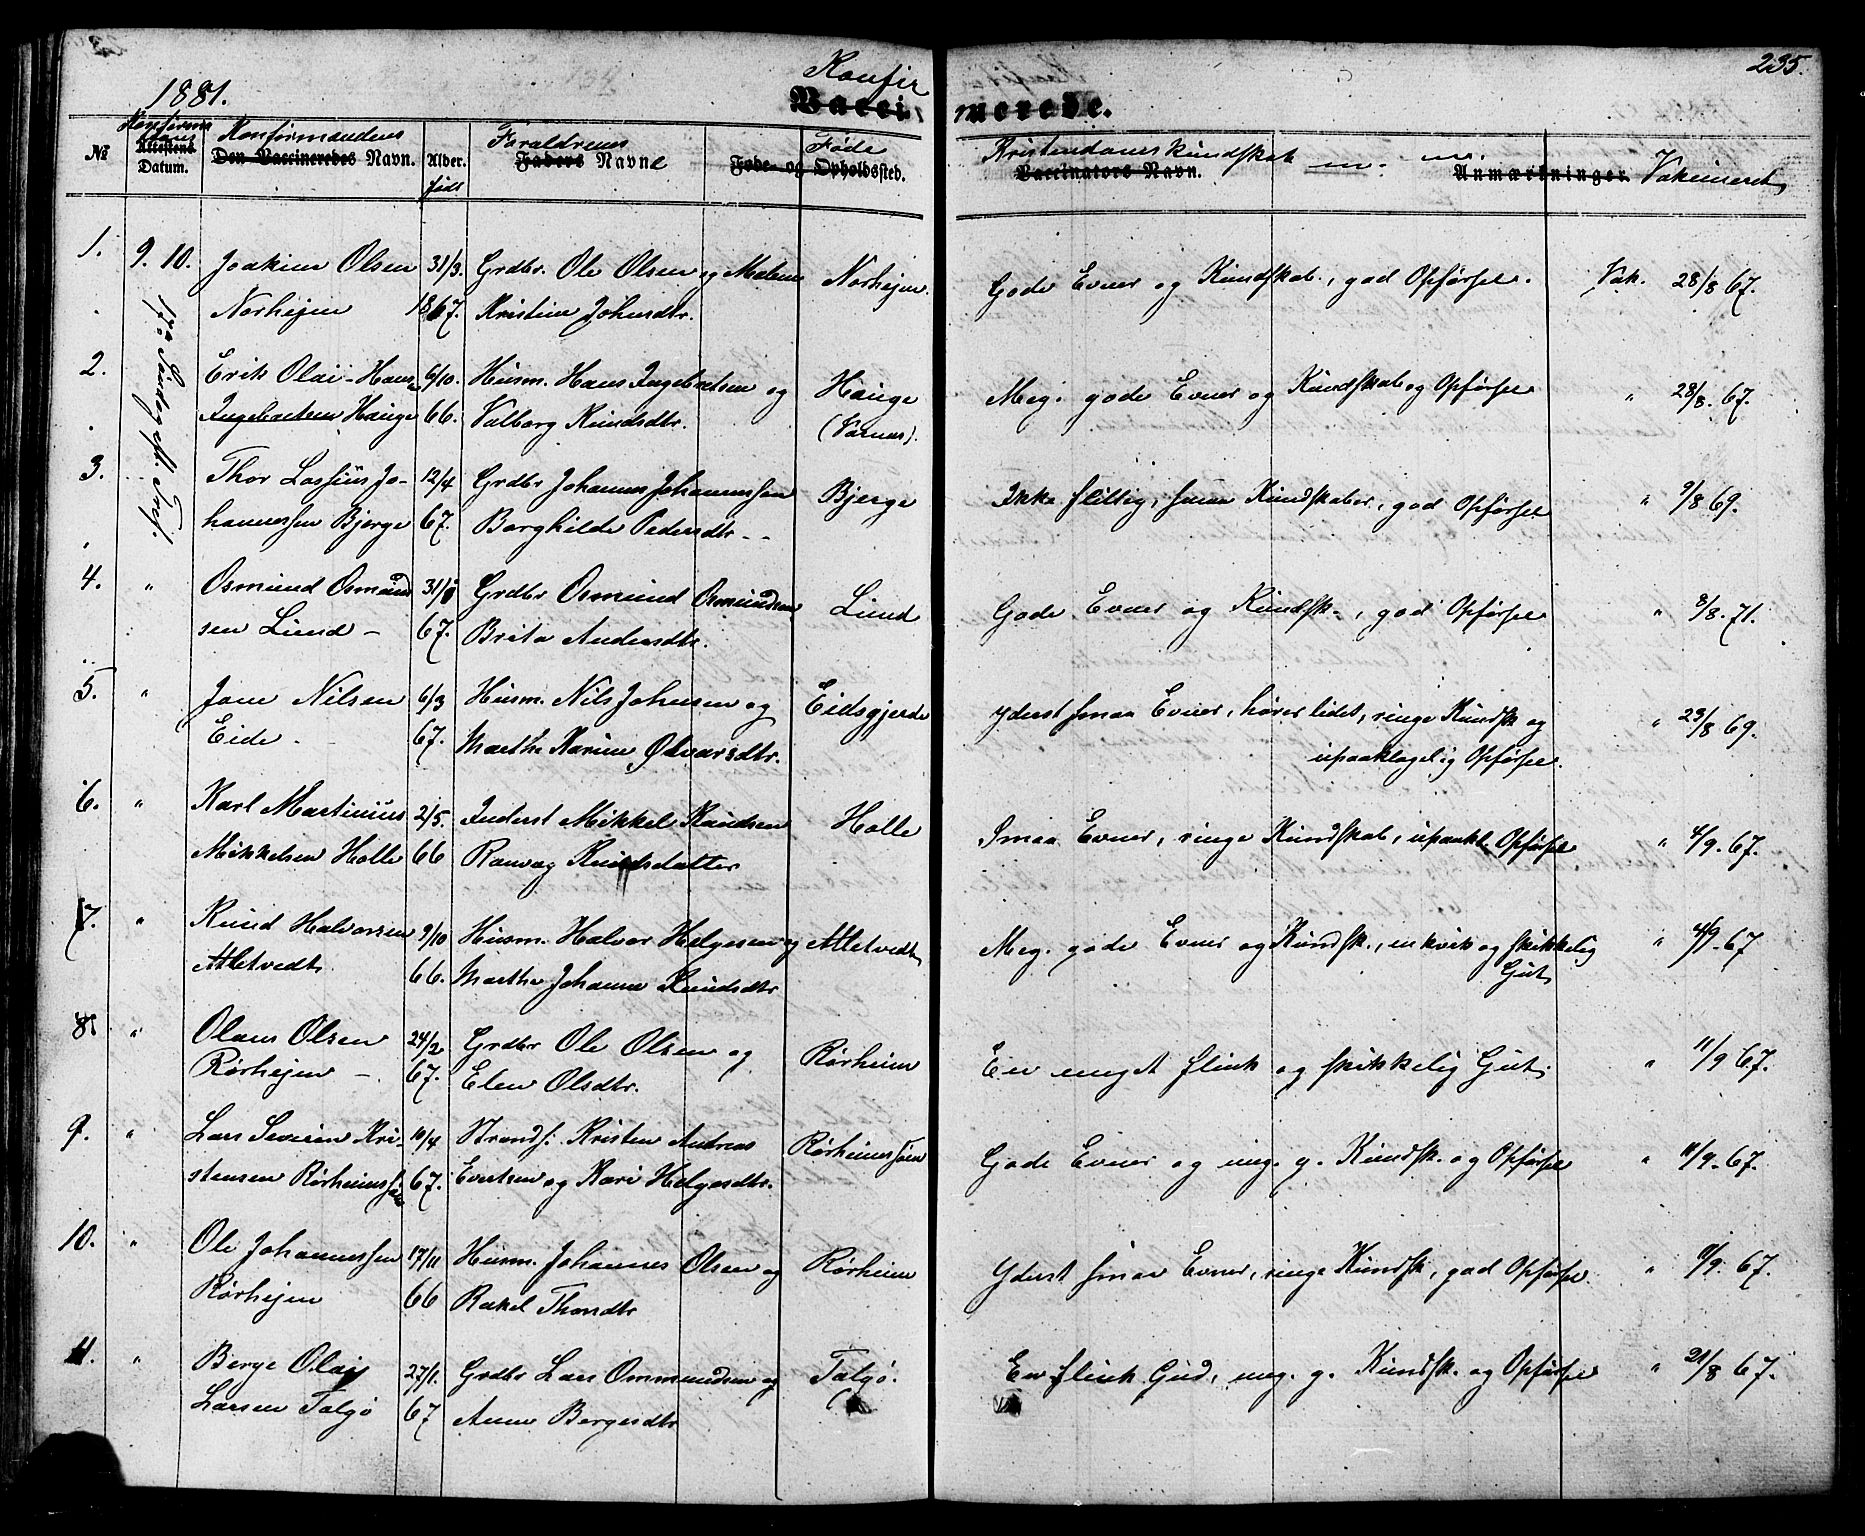 235.
1881.
Konfir
Vacci
merede.
No
Konfirma
tions
Attestens
Datum.
Konfirmandens
Den Vaccineredes Navn.
Alder.
født
Foræildrenes
Faders Navne
Føde
Føde- og Opholdssted.
Kristendomskundskab
m. m.
Vaccinators Navn.
Anmærkninger.
Vakcineret
1. 9. 10. Joakim Olsen 31/3. Grdbr. Ole Olsen og Malene Norhejm. Gode Evner og Kundskab., god Opførsel. Vak. 28/8 67.
Norhejm 1867. Kristine Johnsdtr.
17de Søndag eft. Tref.
2. Erik Olai Hans 6/10. Husm. Hans Ingebretsen og Hauge Meg. gode Evner og Kundskab og Opførsel " 28/8. 67.
Ingebretsen Hauge 66. Valborg Knudsdtr. (Vernes).
3. Thor Lassius Jo- 12/4 Grdbr Johannes Johannessen Bjerge Ikke flittig, smaa Kundskaber, god Opførsel " 9/8 69.
hannessen Bjerge 67. Borghilde Pedersdtr --
4. " Osmund Osmund 31/8 Grdbr Osmund Osmundsen Lund Gode Evner og Kundsk-, god Opførsel " 8/8. 71.
sen Lund - 67. Brita Andersdtr.
5. " Jone Nilsen 6/3 Husm. Nils Johnsen og Eidsgjerde Yderst smaa Evner, hører lidet, ringe Kundsk og " 23/8 69.
Eide - 67. Marthe Karine Edvarsdtr. upaaklagelig Opførsel.
6. " Karl Martinius 2/5. Inderst Mikkel Knudsen Halle Smaa Evner, ringe Kundskab, upaakl. Opførsel " 4/9. 67.
Mikkelsen Halle 66 Ranvag Knudsdatter
7. " Knud Halvorsen 9/10 Husm. Halvor Helgesen og Atletvedt Meg. gode Evner og Kundsk., en kvik og skikkelig " 4/9. 67
Atletvedt 66. Marthe Johanne Knudsdtr Gut
8. " Olaus Olsen 24/2 Grdbr Ole Olsen og Rørheim En meget flink og skikkelig Gut. " 11/9 67.
Rørhejm - 67. Elen Olsdtr.
9. " Lars Severin Kri- 10/4 Strands. Kristen Andreas Rørheimsøen Gode Evner og meg. g. Kundsk. og Opførsel " 11/9. 67.
stensen Rørheims 67. Evertsen og Kari Helgesdtr.
10. " Ole Johannessen 17/11 Husm. Johannes Olsen og Rørheim Yderst smaa Evner, ringe Kundsk, god Opførsel " 11/9. 67.
Rørhejm 66 Rakel Thorsdtr
11. " Berge Olaj 27/1. Grdbr Lars Ommundsen og Talgø. En flink Gud, meg. g. Kundsk. og Opførsel " 21/8 67.
Larsen Talgø 67 Anne Bergesdtr